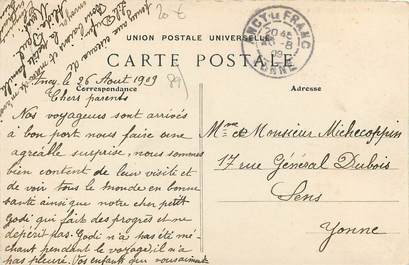 20 €
ANCY LE FRANC
20 45
26 -8
09
YONNE
UNION POSTALE UNIVERSELLE
CARTE POSTALE
Ancy, le 26 Août 1909
(89)
Correspondance
Adresse
Chers parents
Nos voyageurs sont arrivés
à bon port nous faire une
agréable surprise, nous sommes
bien content de leur visite et
de voir tous le monde en bonne
santé ainsi que notre cher petit
Godi qui fait des progrès et ne
dépérit pas. Godi n'a pas été mé-
chant pendant le voyage, il n'a
pas pleuré. Vos enfants qui vous aiment
Mme et Monsieur Michecoppin
17 rue Général Dubois
Sens
Yonne